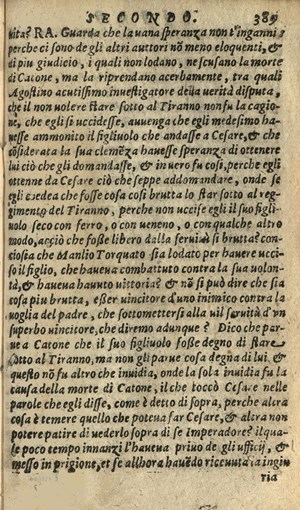 SECONDO. 389
uita? RA. Guarda che la uana speranza non t'inganni
perche ci sono de gli altri auttori nõ meno eloquenti, &
di piu giudicio, i quali non lodano, ne scusano la morte
di Catone, ma la riprendano acerbamente, tra quali
Agostino acutissimo inuestigatore della uerità disputa,
che il non uolere stare sotto al Tiranno non fu la cagio
ne, che egli si uccidesse, auuenga che egli medesimo ha-
uesse ammonito il figliuolo che andasse a Cesare, & che
cõsiderata la sua clemẽza hauesse speranza di ottenere
lui ciò che gli domandasse, & in uero fu cosi, perche egli
ottenne da Cesare ciò che seppe addomandare, onde se
egli credea che fosse cosa cosi brutta lo star sotto al reg-
gimento del Tiranno, perche non uccise egli il suo figli-
uolo seco con ferro, o con ueneno, o con qualche altro
modo, acciò che foße libero dalla seruitù si brutta? con-
ciosia che Manlio Torquato sia lodato per hauere ucci-
so il figlio, che haueua combattuto contra la sua uolon-
tà, & haueua hauuto uittoria? & nõ si può dire che sia
cosa piu brutta, eßer uincitore d'uno inimico contra la
uoglia del padre, che sottomettersi alla uil seruitù d'un
superbo uincitore, che diremo adunque? Dico che par-
ue a Catone che il suo figliuolo foße degno di stare
sotto al Tiranno, ma non gli parue cosa degna di lui, &
questo nõ fu altro che inuidia, onde la sola inuidia fu la
causa della morte di Catone, il che toccò Cesare nelle
parole che egli disse, come è detto di sopra, perche altra
cosa è temere quello che poteua far Cesare, & altra non
potere patire di uederlo sopra di se Imperadore? il qua-
le poco tempo innanzi l'haueua priuo de gli ufficij, &
messo in prigione, et se allhora hauẽdo riceuuta la ingiu
ria